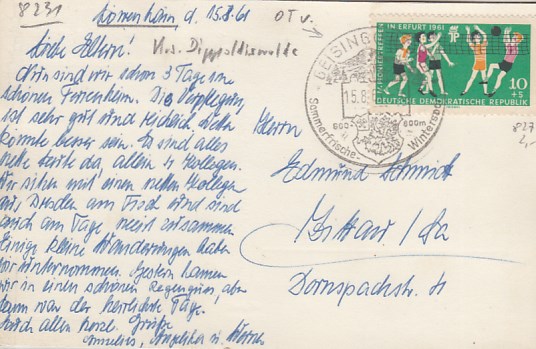 8231
Börnchen d. 15.8.61
OTv.
Krs. Dippoldiswalde
Liebe Eltern!
Nun sind wir schon 3 Tage im
schönen Ferienheim. Die Verpflegung
ist sehr gut und reichlich,
könnte besser sein. Es sind alles
nette Leute da, allein 4 Kollegen.
Wir sitzen mit einem netten Kollegen
aus Dresden am Tisch und sind
auch am Tage, meist zusammen
Einige kleine Wanderungen haben
wir unternommen. Gestern kamen
wir in einen schönen Regenguss, aber
dann war der herrlichste Tage.
Euch allen herzl. Grüße
Annelies, Angelika u. Werner
GEISING
15.8.
600-800m
Sommerfrische - Wintersport
PIONIERTREFFEN IN ERFURT 1961
10
+5
DEUTSCHE DEMOKRATISCHE REPUBLIK
827
2,-
Herrn
Edmund Schmidt
Zittau / Sa
Dornspachstr. 11